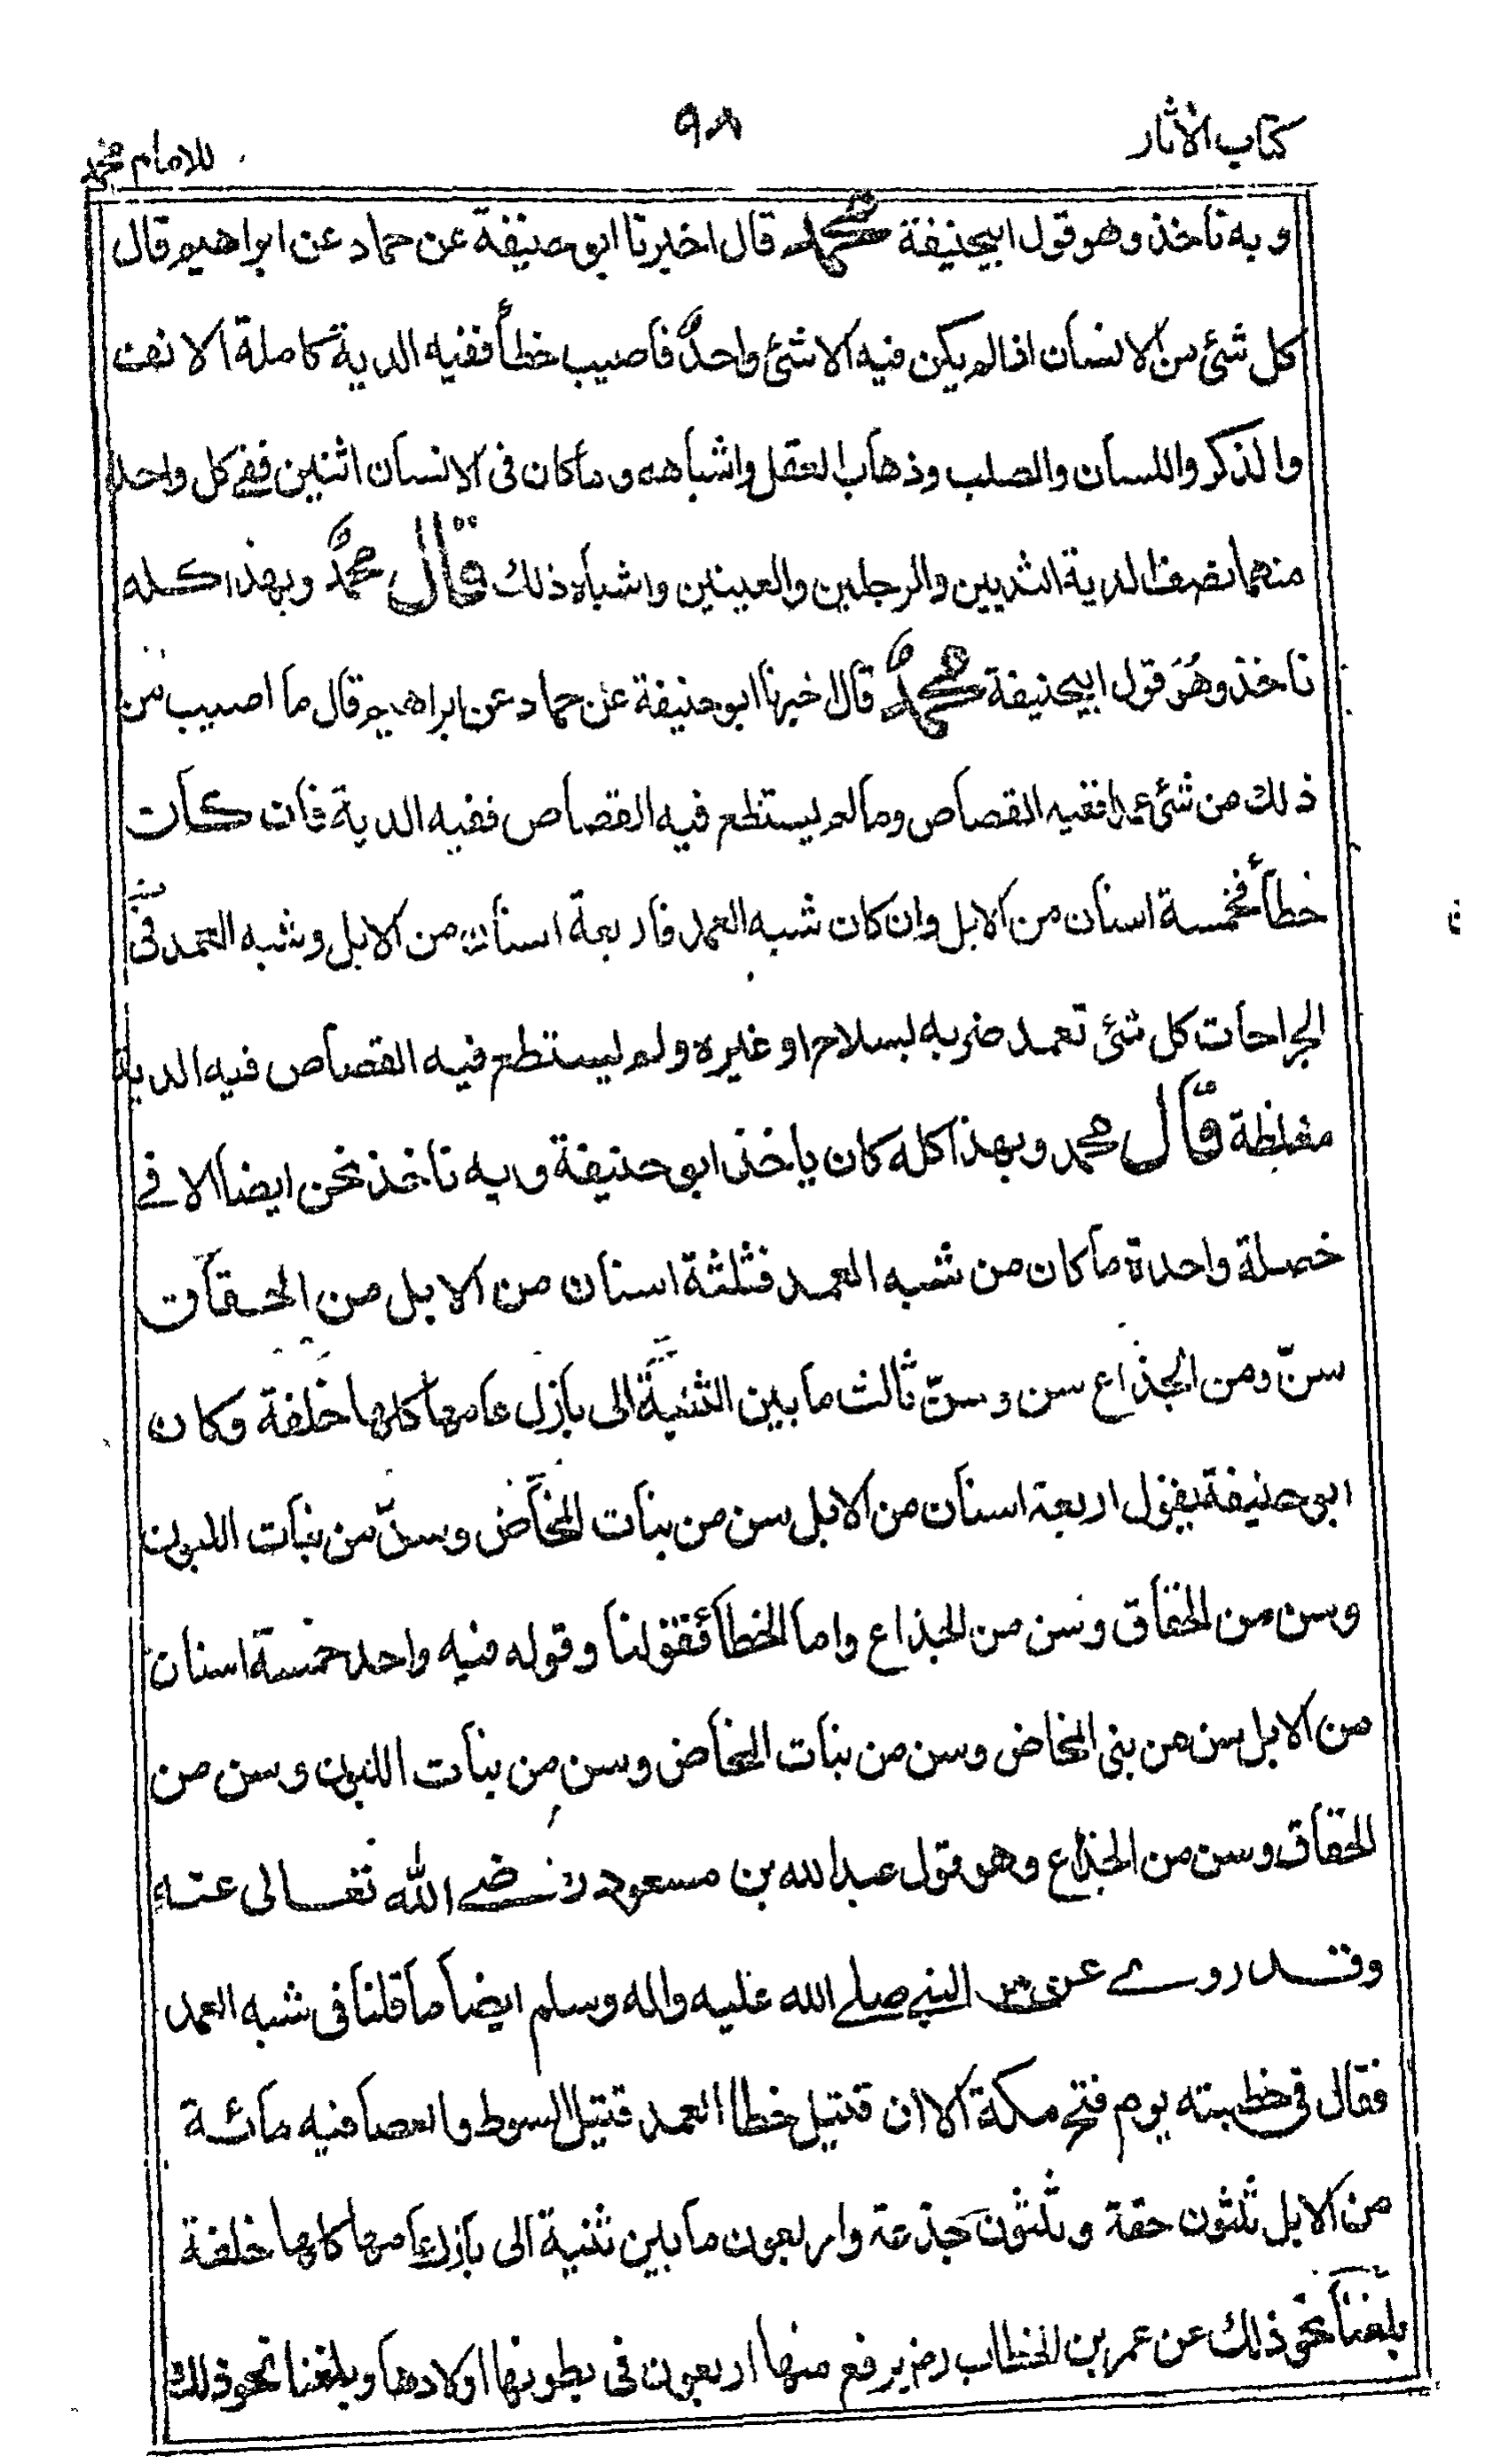 كتاب الاثار
٩٨
للامام محمد
وبه ناخذ وهو قول ابيحنيفة محمد قال اخبرنا ابو حنيفة عن حماد عن ابراهيم قال
كل شئ من الانسان اذا لم يكن فيه الا شئ واحد فاصيب خطأ ففيه الدية كاملة الانف
والذكر واللسان والصلب وذهاب العقل واشباهه وما كان فى الانسان اثنين ففى كل واحد
منهما نصف الدية الثديين والرجلين والعينين واشباه ذلك قال محمد وبهذا كله
ناخذ وهو قول ابيحنيفة محمد قال اخبرنا ابو حنيفة عن حماد عن ابراهيم قال ما اصيب من
ذلك من شئ عمدا ففيه القصاص وما لم يستطع فيه القصاص ففيه الدية فان كان
خطأ فخمسة اسنان من الابل وان كان شبه العمد فاربعة اسنان من الابل وشبه العمد فى
الجراحات كل شئ تعمد ضربه بسلاح او غيره ولم يستطع فيه القصاص فيه الدية
مغلظة قال محمد وبهذا كله كان ياخذ ابو حنيفة وبه ناخذ نحن ايضا الا فى
خصلة واحدة ما كان من شبه العمد فثلثة اسنان من الابل من الحقاق
سنّ ومن الجذاع سن وسنّ ثالث ما بين الثنية الى بازل عامها كلها خلفة وكان
ابو حنيفة يقول اربعة اسنان من الابل سن من بنات المخاض وسنّ من بنات اللبون
وسن من الحقاق وسن من الجذاع واما الخطأ فقولنا وقوله فيه واحد خمسة اسنان
من الابل سن من بنى المخاض وسن من بنات المخاض وسن من بنات اللبون وسن من
الحقاق وسن من الجذاع وهو قول عبد الله بن مسعود رضى الله تعالى عنه
وقد روى عن النبى صلى الله عليه واله وسلم ايضا ما قلنا فى شبه العمد
فقال فى خطبته يوم فتح مكة الا ان قتيل خطا العمد قتيل السوط والعصا فيه مائة
من الابل ثلثون حقة وثلثون جذعة واربعون ما بين ثنية الى بازل عامها كلها خلفة
بلغنا نحو ذلك عن عمر بن الخطاب رض يرفع منها اربعون فى بطونها اولادها وبلغنا نحو ذلك